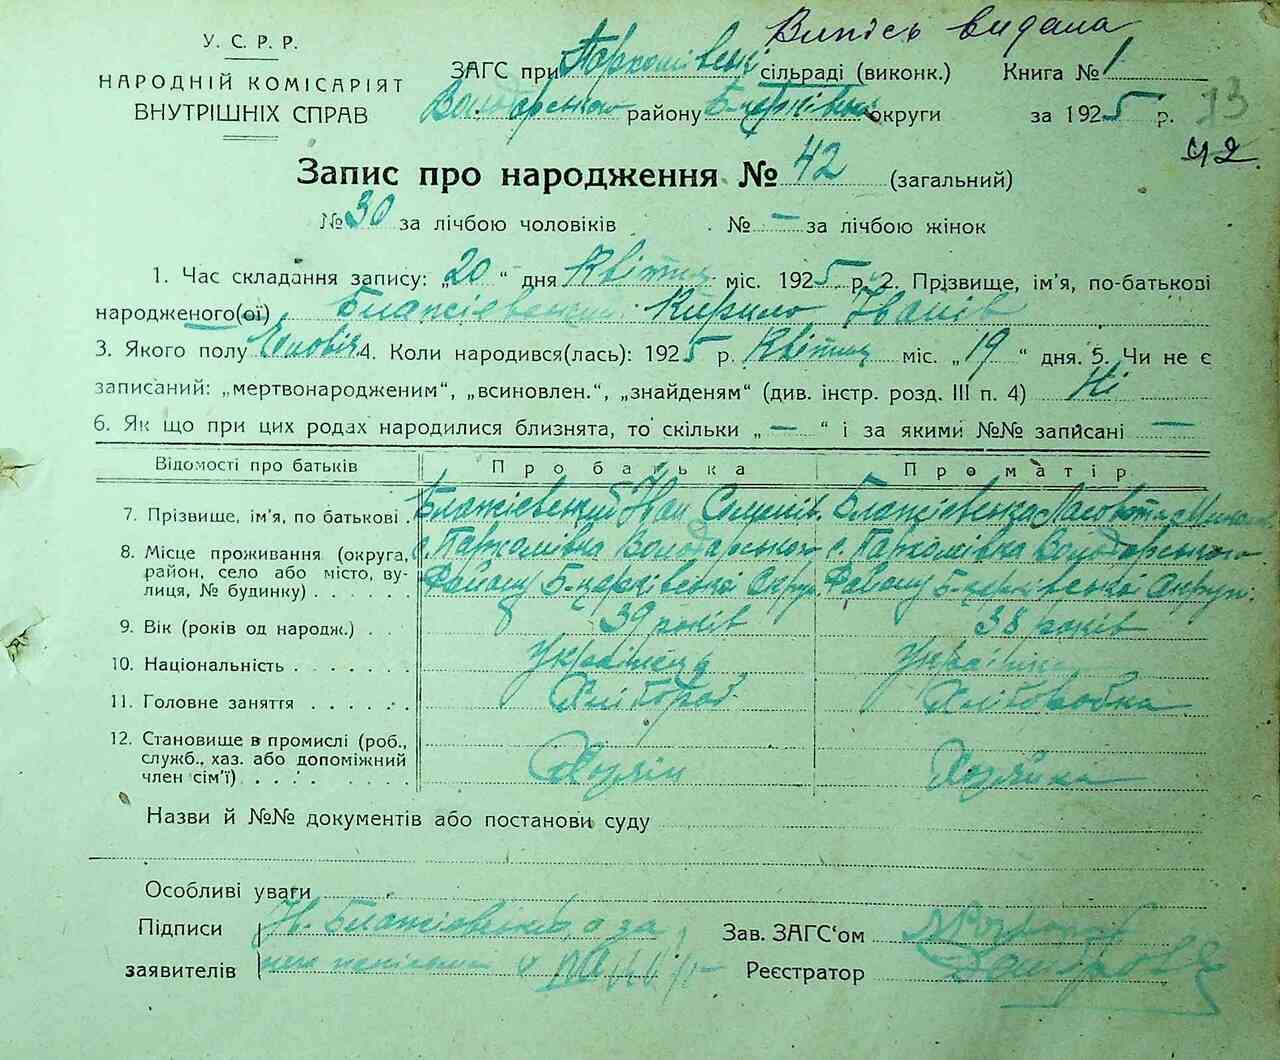 Випись видана
У. С. Р. Р.
НАРОДНІЙ КОМІСАРІЯТ
ВНУТРІШНІХ СПРАВ
ЗАГС при Пархомівські сільраді (виконк.) Книга № 1
Володарського району Б-церківської округи за 1925 р.
93
42
Запис про народження № 42 (загальний)
№ 30 за лічбою чоловіків № — за лічбою жінок
1. Час складання запису: „20“ дня Квітня міс. 1925 р. 2. Прізвище, ім'я, по-батькові
народженого(ої) Блажієвський Кирило Іванів
3. Якого полу Чоловіч 4. Коли народився(лась): 1925 р. Квітня міс. „19“ дня. 5. Чи не є
записаний: „мертвонародженим“, „всиновлен.“, „знайденям“ (див. інстр. розд. III п. 4) Ні
6. Як що при цих родах народилися близнята, то скільки „—“ і за якими №№ записані —
Відомості про батьків Про батька Про матір
7. Прізвище, ім'я, по батькові. Блажієвський Іван Блажієвська
8. Місце проживання (округа, район, село або місто, вулиця, № будинку) . . . . .
с. Пархомівка Володарського с. Пархомівка Володарського
Району Б-церківської Округи Району Б-церківської Округи
9. Вік (років од народж.) . . 39 років 38 років
10. Національність . . . . . . . Українець Українка
11. Головне заняття . . . . . . Хлібороб Хлібробка
12. Становище в промислі (роб., служб., хаз. або допоміжний член сім'ї) . . . . .
Хазяін Хазяйка
Назви й №№ документів або постанови суду
Особливі уваги
Підписи Ів. Блажієвський а за
заявителів
Зав. ЗАГС'ом
Реєстратор